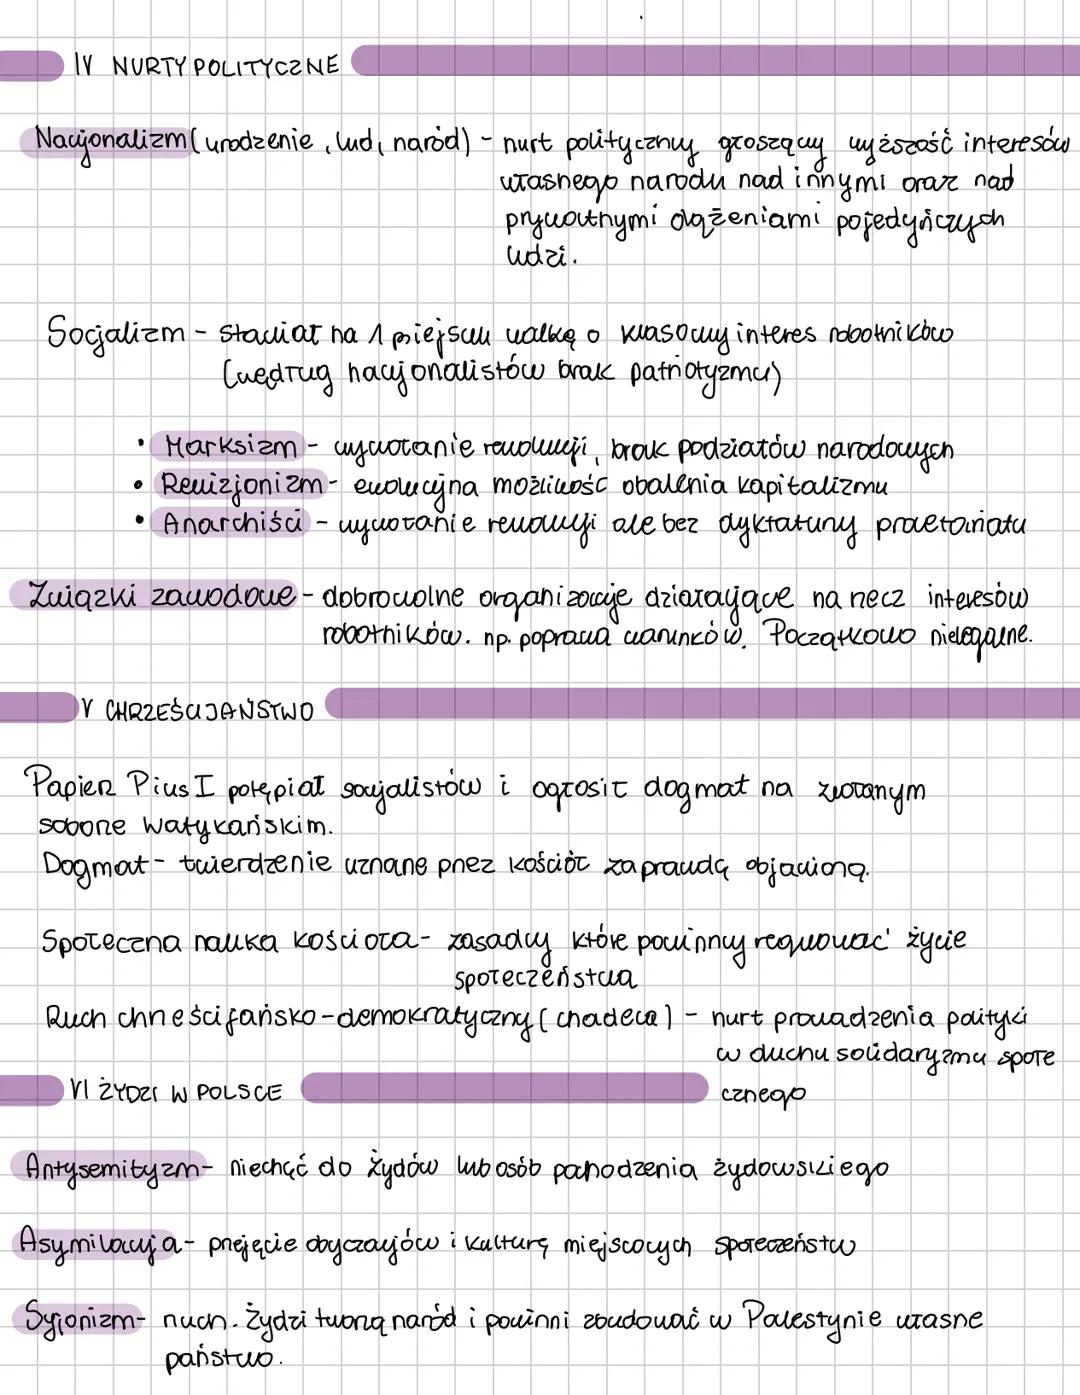 IV NURTY POLITYCZNE
Nacjonalizm (urodzenie, lud, naród) - nurt polityczny głoszący wyższość interesów
własnego narodu nad innymi oraz nad
prywatnymi dążeniami pojedyńczych
ludzi.
Socjalizm - stawiał na 1 miejscu walkę o klasowy interes robotników
(według nacjonalistów brak patriotyzmu)
• Marksizm - wywołanie rewolucji, brak podziałów narodowych
• Rewizjonizm - ewolucyjna możliwość obalenia kapitalizmu
• Anarchiści - wywołanie rewolucji ale bez dyktatury proletariatu
Związki zawodowe - dobrowolne organizacje działające na rzecz interesów
robotników. np. poprawa warunków. Początkowo nielegalne.
V CHRZEŚCIJAŃSTWO
Papież Pius I potępiał socjalistów i ogłosił dogmat na zwołanym
soborze Watykańskim.
Dogmat - twierdzenie uznane przez kościół za prawdę objawioną.
Społeczna nauka kościoła - zasady które powinny regulować życie
społeczeństwa
Ruch chrześcijańsko-demokratyczny (chadeca) - nurt prowadzenia polityki
w duchu solidaryzmu społe
cznego
VI ŻYDZI W POLSCE
Antysemityzm - niechęć do Żydów lub osób pochodzenia żydowskiego
Asymilacja - przejęcie obyczajów i kulturę miejscowych społeczeństw
Syjonizm - ruch. Żydzi tworzą naród i powinni zbudować w Palestynie własne
państwo.